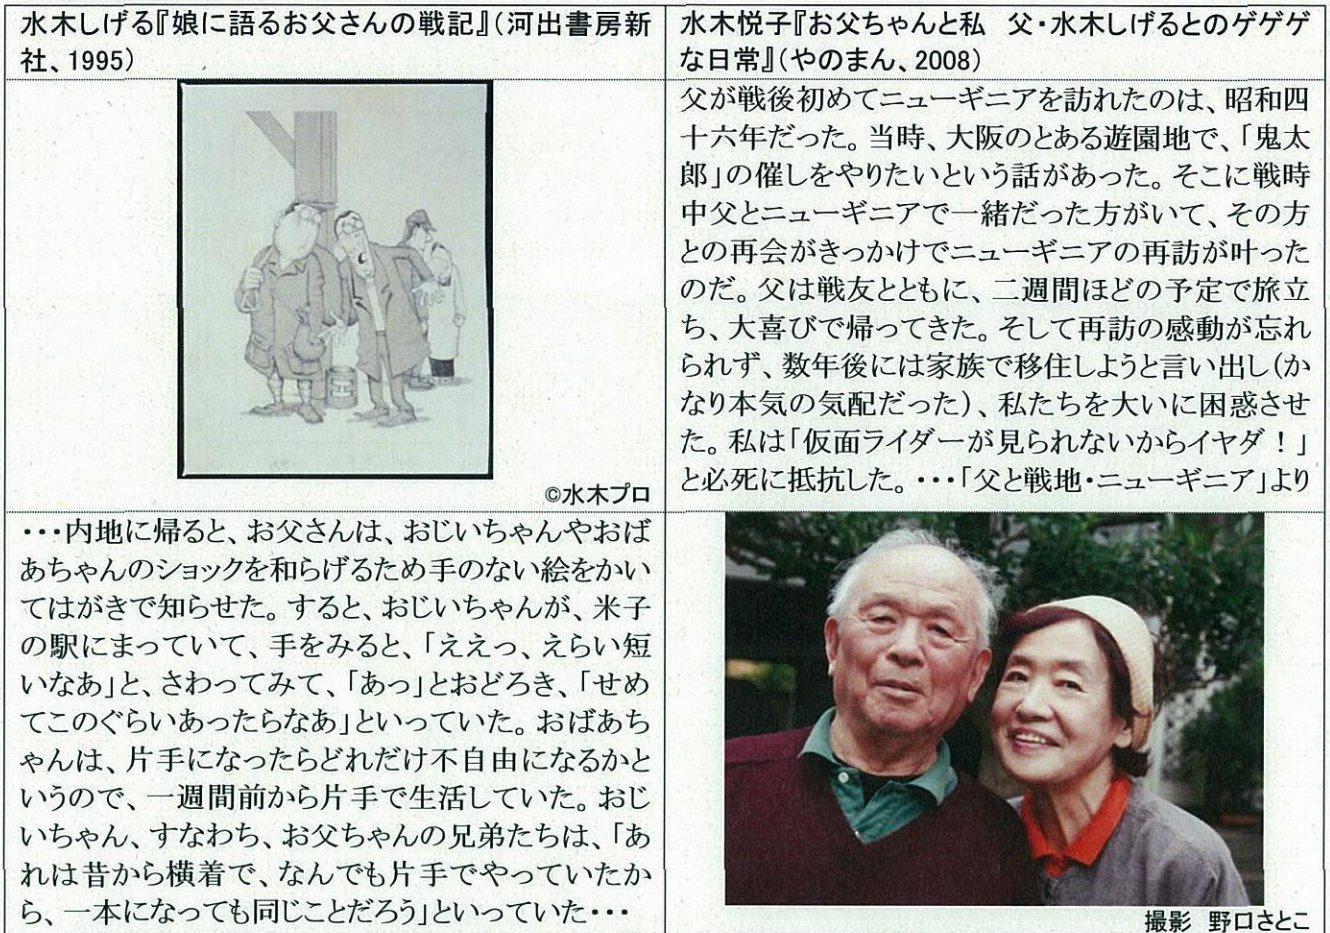 水木しげる『娘に語るお父さんの戦記』(河出書房新
社、1995)
©水木プロ
・・・内地に帰ると、お父さんは、おじいちゃんやおば
あちゃんのショックを和らげるため手のない絵をかい
てはがきで知らせた。すると、おじいちゃんが、米子
の駅にまっていて、手をみると、「ええっ、えらい短
いなあ」と、さわってみて、「あっ」とおどろき、「せめ
てこのぐらいあったらなあ」といっていた。おばあち
ゃんは、片手になったらどれだけ不自由になるかと
いうので、一週間前から片手で生活していた。おじ
いちゃん、すなわち、お父ちゃんの兄弟たちは、「あ
れは昔から横着で、なんでも片手でやっていたか
ら、一本になっても同じことだろう」といっていた・・・
水木悦子『お父ちゃんと私　父・水木しげるとのゲゲゲ
な日常』(やのまん、2008)
父が戦後初めてニューギニアを訪れたのは、昭和四
十六年だった。当時、大阪のとある遊園地で、「鬼太
郎」の催しをやりたいという話があった。そこに戦時
中父とニューギニアで一緒だった方がいて、その方
との再会がきっかけでニューギニアの再訪が叶った
のだ。父は戦友とともに、二週間ほどの予定で旅立
ち、大喜びで帰ってきた。そして再訪の感動が忘れ
られず、数年後には家族で移住しようと言い出し(か
なり本気の気配だった)、私たちを大いに困惑させ
た。私は「仮面ライダーが見られないからイヤダ！」
と必死に抵抗した。・・・「父と戦地・ニューギニア」より
撮影　野口さとこ